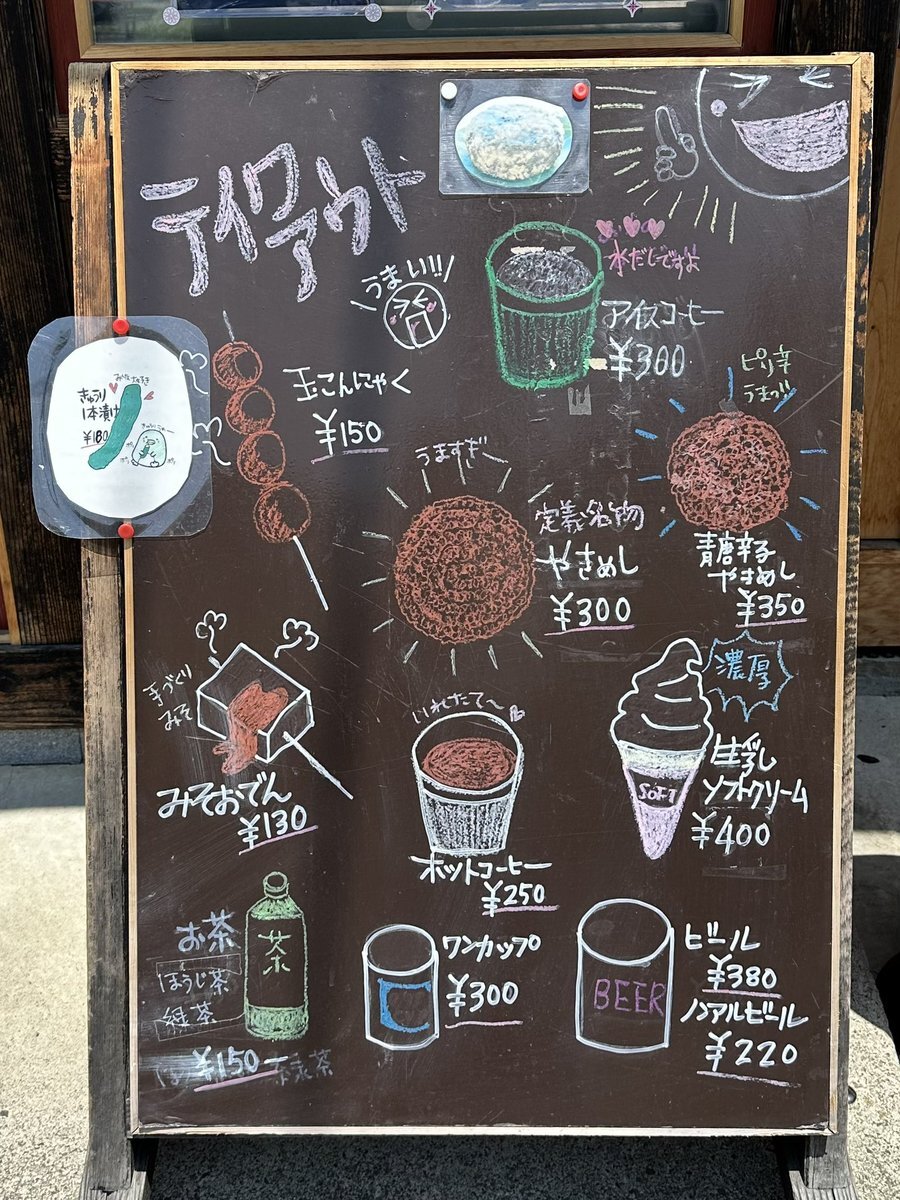 テイクアウト
うまい!!
水だしですよ
アイスコーヒー
¥300
きゅうり
1本漬け
¥180
玉こんにゃく
¥150
ピリ辛
うまっ!!
うますぎ〜
定義名物
やきめし
¥300
青唐辛子
やきめし
¥350
手づくり
みそ
みそおでん
¥130
いれたて〜
ホットコーヒー
¥250
濃厚
生乳
ソフトクリーム
SOFT
¥400
お茶
ほうじ茶
緑茶
茶
¥150
ワンカップ
¥300
BEER
ビール
¥380
ノンアルビール
¥220